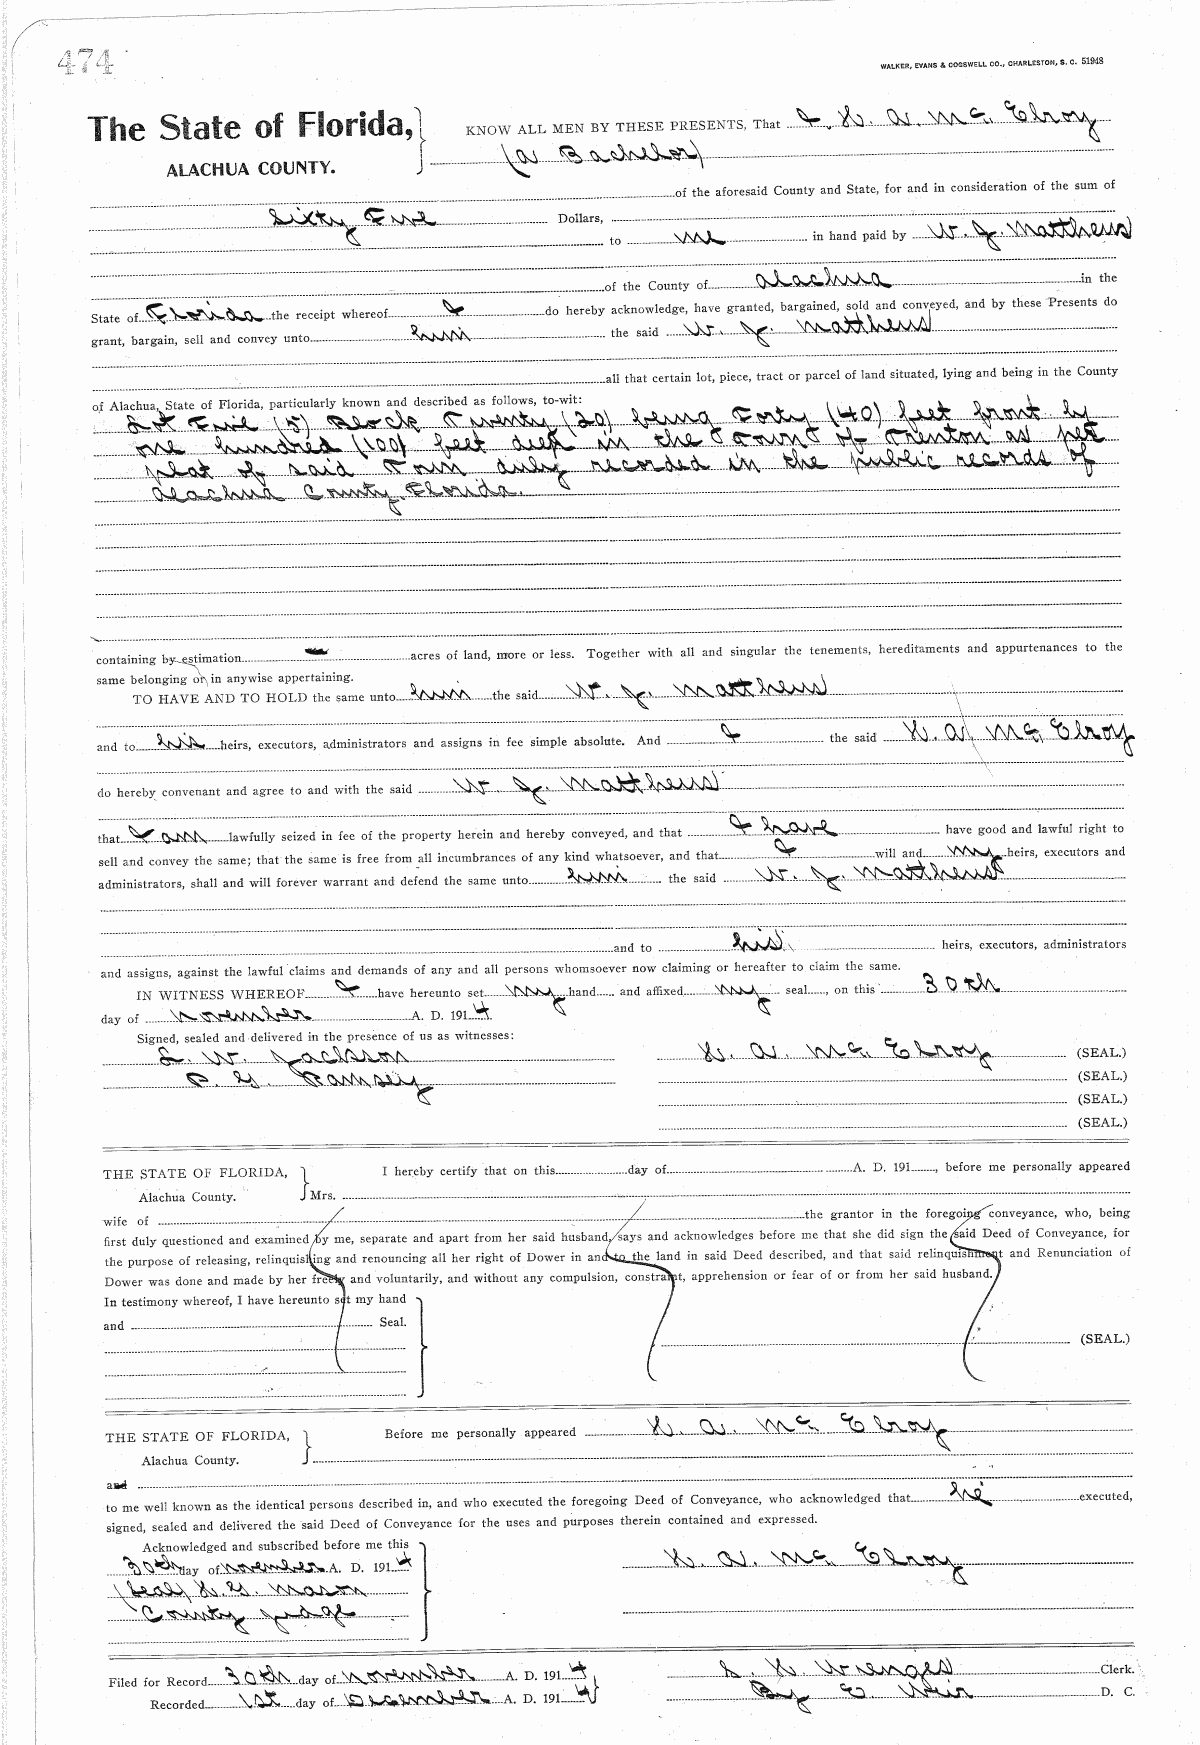 474
WALKER, EVANS & COGSWELL CO., CHARLESTON, S. C. 51948
The State of Florida,
ALACHUA COUNTY.
KNOW ALL MEN BY THESE PRESENTS, That I, H. A. Mc. Elroy
(a Bachelor)
of the aforesaid County and State, for and in consideration of the sum of
Sixty Five Dollars,
to me in hand paid by W. J. Matthews
of the County of Alachua in the
State of Florida the receipt whereof I do hereby acknowledge, have granted, bargained, sold and conveyed, and by these Presents do
grant, bargain, sell and convey unto him the said W. J. Matthews
all that certain lot, piece, tract or parcel of land situated, lying and being in the County
of Alachua, State of Florida, particularly known and described as follows, to-wit:
Lot Five (5) Block Twenty (20) being Forty (40) feet front by
one hundred (100) feet deep in the Town of Trenton as per
plat of said Town duly recorded in the public records of
Alachua County, Florida.
containing by estimation acres of land, more or less. Together with all and singular the tenements, hereditaments and appurtenances to the
same belonging or in anywise appertaining.
TO HAVE AND TO HOLD the same unto him the said W. J. Matthews
and to his heirs, executors, administrators and assigns in fee simple absolute. And I the said H. A. Mc. Elroy
do hereby convenant and agree to and with the said W. J. Matthews
that I am lawfully seized in fee of the property herein and hereby conveyed, and that I have have good and lawful right to
sell and convey the same; that the same is free from all incumbrances of any kind whatsoever, and that I will and my heirs, executors and
administrators, shall and will forever warrant and defend the same unto him the said W. J. Matthews
and to his heirs, executors, administrators
and assigns, against the lawful claims and demands of any and all persons whomsoever now claiming or hereafter to claim the same.
IN WITNESS WHEREOF I have hereunto set my hand and affixed my seal, on this 30th
day of November A. D. 1914.
Signed, sealed and delivered in the presence of us as witnesses:
L. W. Jackson H. A. Mc. Elroy (SEAL.)
P. G. Ramsey (SEAL.)
(SEAL.)
(SEAL.)
THE STATE OF FLORIDA, I hereby certify that on this day of A. D. 191 , before me personally appeared
Alachua County. Mrs.
wife of the grantor in the foregoing conveyance, who, being
first duly questioned and examined by me, separate and apart from her said husband, says and acknowledges before me that she did sign the said Deed of Conveyance, for
the purpose of releasing, relinquishing and renouncing all her right of Dower in and to the land in said Deed described, and that said relinquishment and Renunciation of
Dower was done and made by her freely and voluntarily, and without any compulsion, constraint, apprehension or fear of or from her said husband.
In testimony whereof, I have hereunto set my hand
and Seal.
(SEAL.)
THE STATE OF FLORIDA, Before me personally appeared H. A. Mc. Elroy
Alachua County.
and
to me well known as the identical persons described in, and who executed the foregoing Deed of Conveyance, who acknowledged that he executed,
signed, sealed and delivered the said Deed of Conveyance for the uses and purposes therein contained and expressed.
Acknowledged and subscribed before me this
30th day of November A. D. 1914 H. A. Mc. Elroy
(Seal) H. G. Mason
County Judge
Filed for Record 30th day of November A. D. 1914 S. H. Wienges Clerk.
Recorded 1st day of December A. D. 1914 By E. Weir D. C.